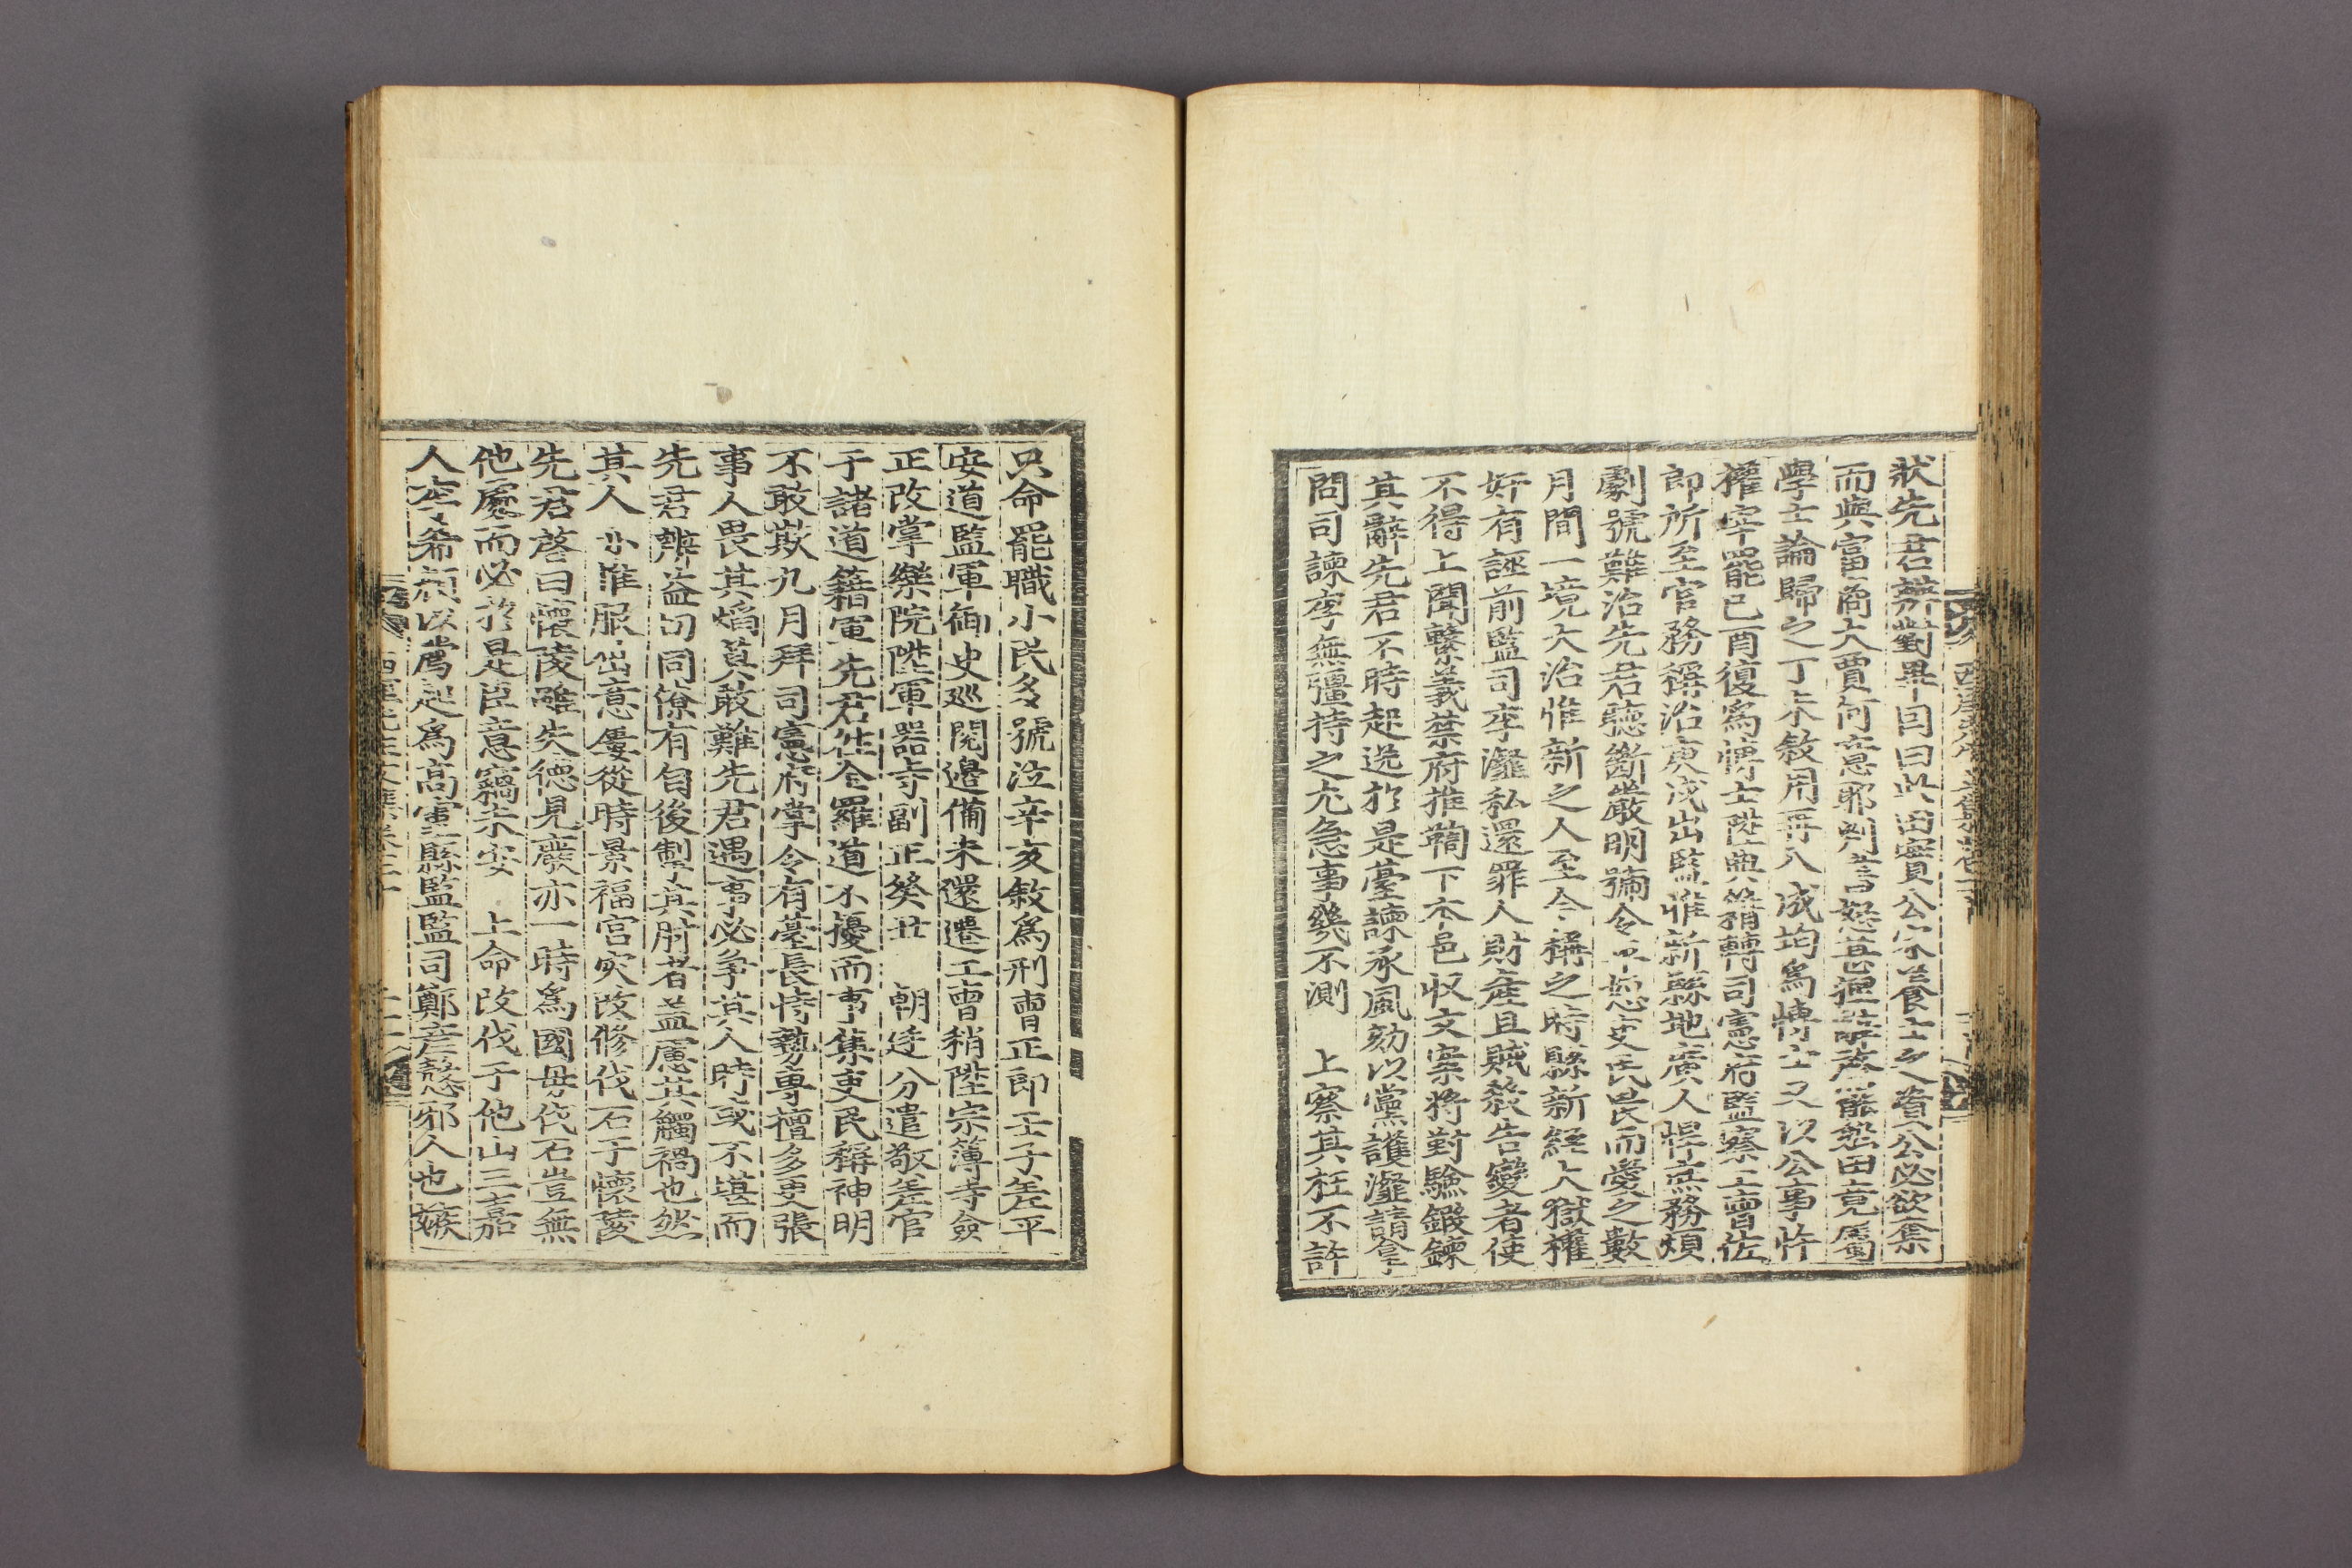 狀先君辨對畢回曰此田實公家養士之資公必欲奪
而與富商大賈何意耶判書怒甚逕辭啓罷然田竟屬
學士論歸之丁未敘用再入成均爲博士又以公事忤
權宰罷己酉復爲博士陞典籍轉司憲府監察工曹佐
郎所至官務稱治庚戌出監惟新縣地廣人悍庶務煩
劇號難治先君聽斷嚴明號令不忒吏民畏而愛之數
月間一境大治惟新之人至今稱之時縣新經大獄權
奸有誣前監司李瀣私還罪人財産且賊殺告變者使
不得上聞繫義禁府推鞫下本邑收文案將對驗鍛鍊
其辭先君不時起送於是臺諫承風劾以黨護瀣請拿
問司諫李無彊持之尤急事幾不測 上察其枉不許
只命罷職小民多號泣辛亥敘爲刑曹正郎壬子差平
安道監軍御史巡閱邊備未還遷工曹稍陞宗簿寺僉
正改掌樂院陞軍器寺副正癸丑 朝廷分遣敬差官
于諸道籍軍先君往全羅道不擾而事集吏民稱神明
不敢欺九月拜司憲府掌令有臺長恃勢專擅多吏張
事人畏其焰莫敢難先君遇事必爭其人時或不堪而
先君辨益切同僚有自後掣其肘者盖慮其觸禍也然
其人亦雅服出意屢從時景福宮灾改修伐石于懷陵
先君啓曰懷陵雖失德見廢亦一時爲國母伐石豈無
他處而必於是臣意竊未安 上命改伐于他山三嘉
人李希顔以薦起爲高靈縣監監司鄭彦慤邪人也嫉